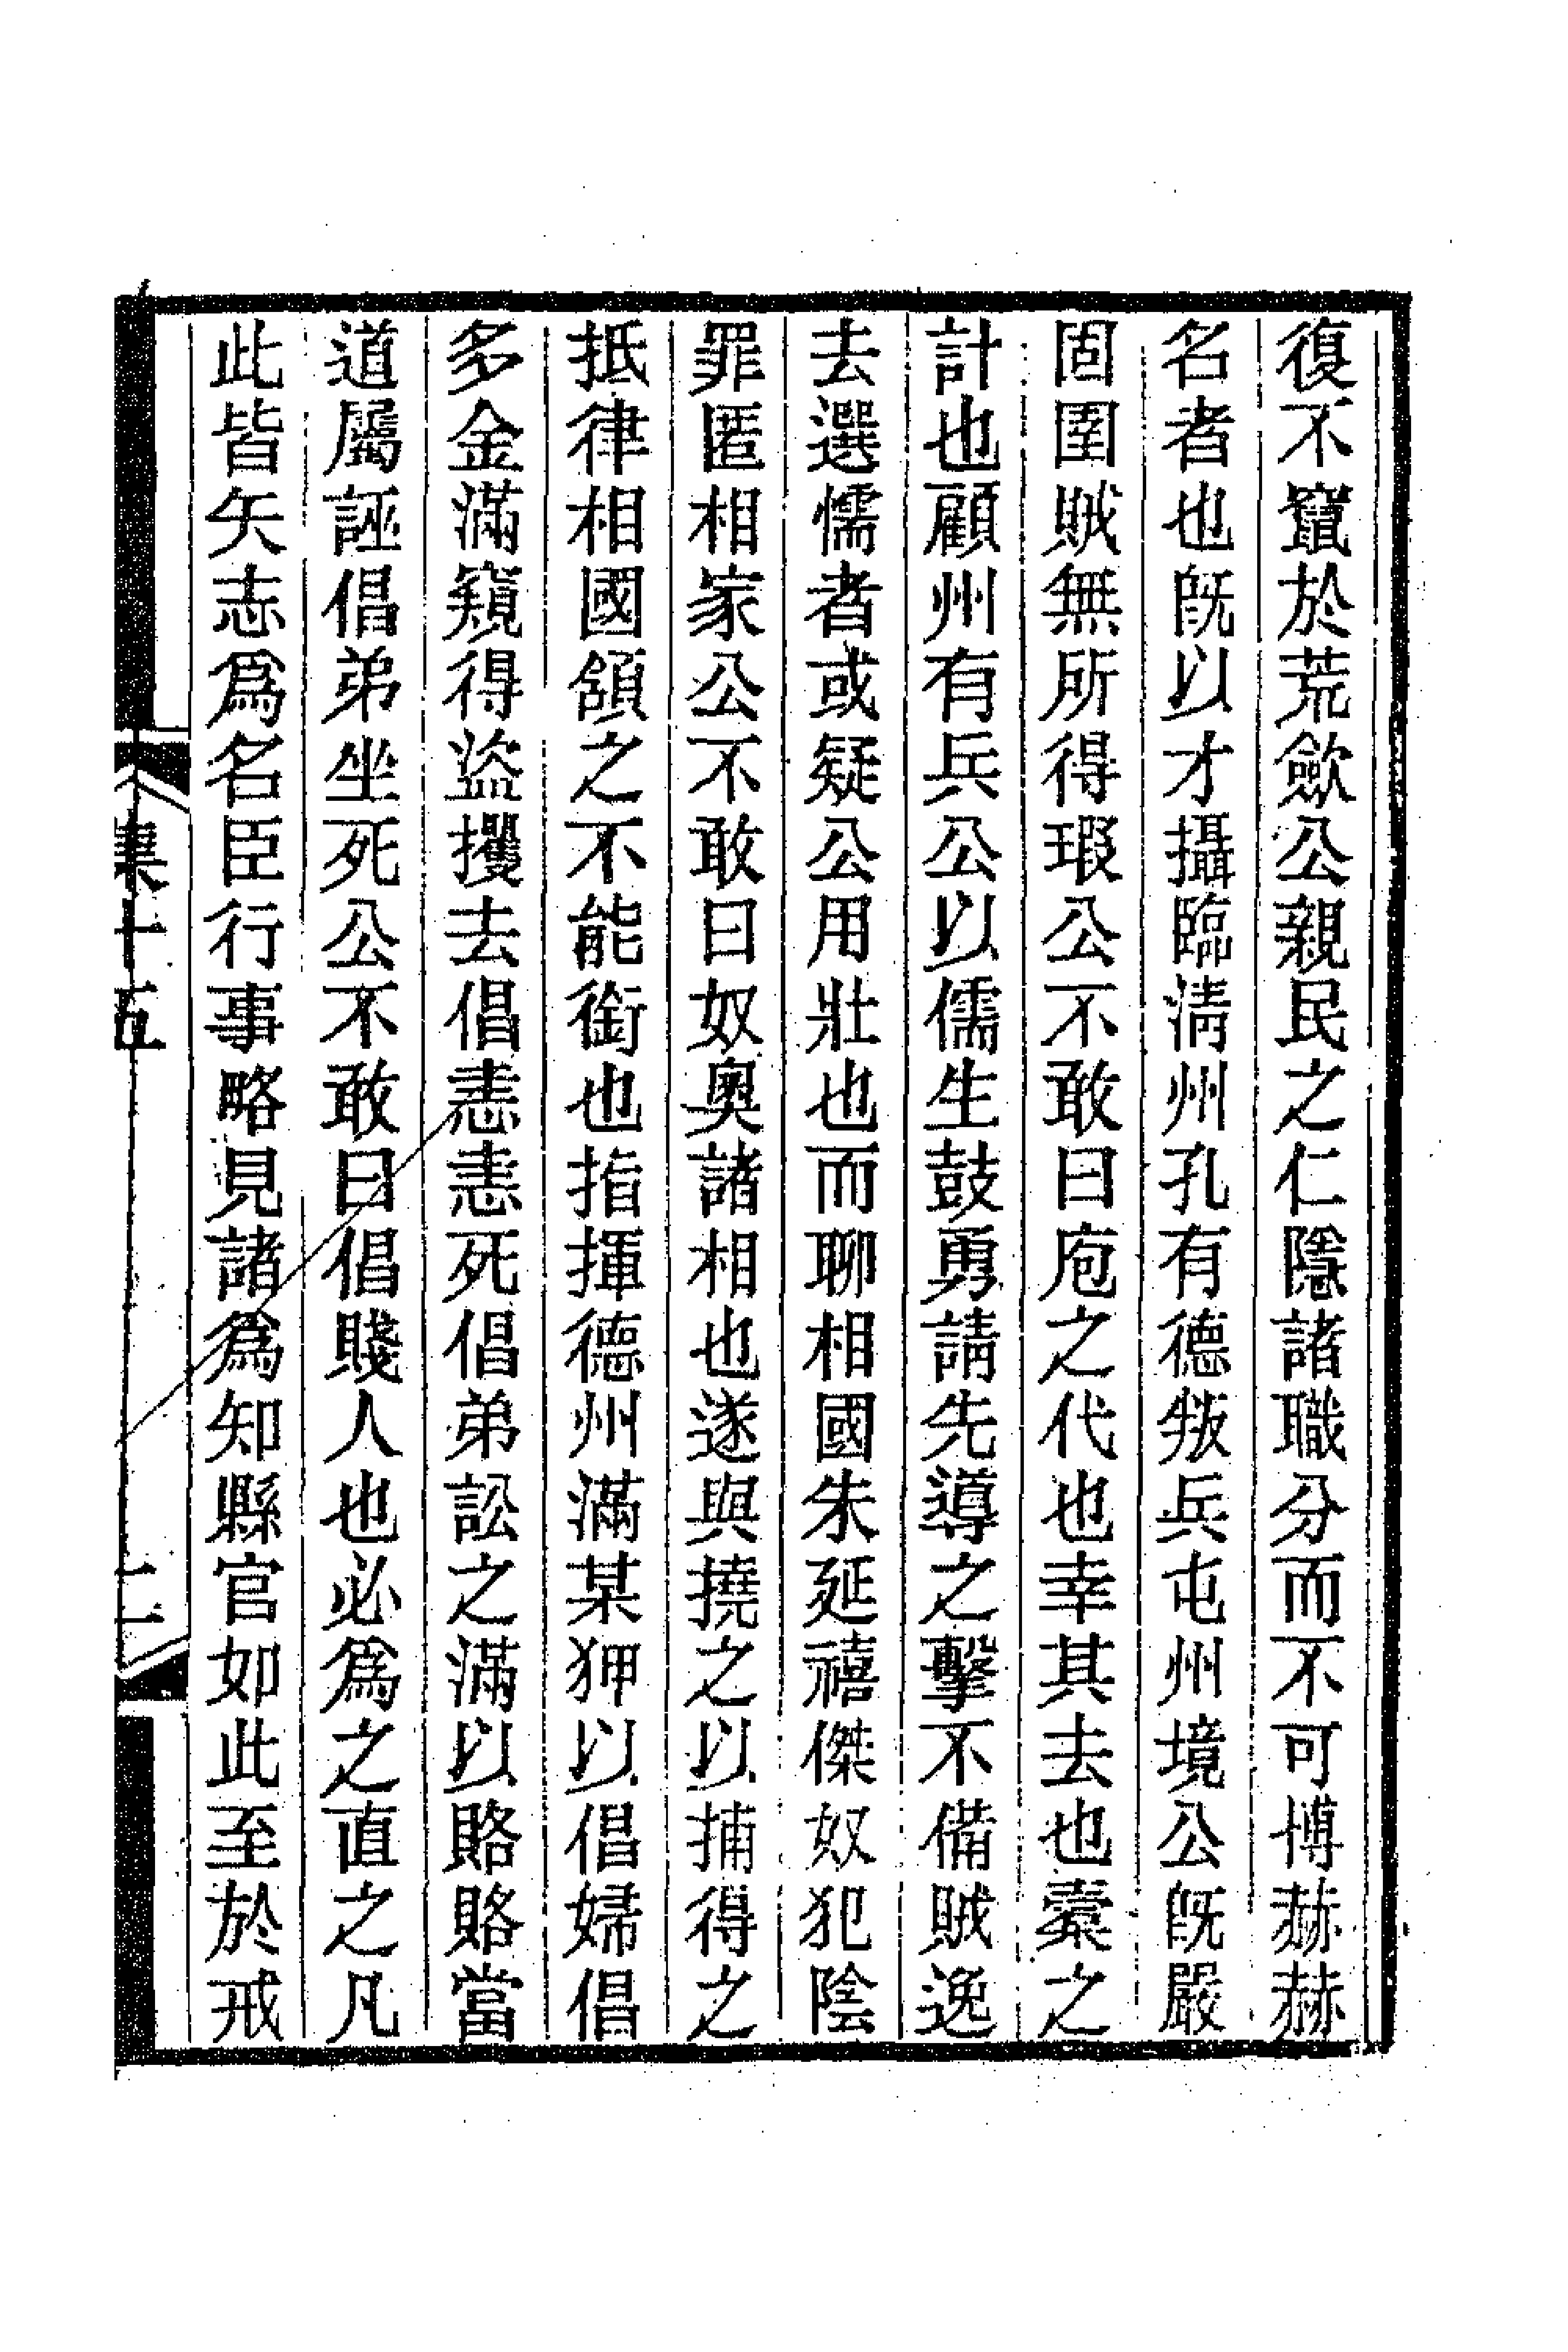 復不竄於荒歛公親民之仁隱諸職分而不可博赫赫
名者也旣以才攝臨淸州孔有德叛兵屯州境公旣嚴
固圉賊無所得瑕公不敢曰庖之代也幸其去也櫜之
計也顧州有兵公以儒生鼓勇請先導之擊不備賊逸
去選懦者或疑公用壯也而聊相國朱延禧傑奴犯陰
罪匿相家公不敢曰奴奧諸相也遂與撓之以捕得之
抵律相國頷之不能銜也指揮德州滿某狎以倡婦倡
多金滿窺得盜攫去倡恚恚死倡弟訟之滿以賂賂當
道屬誣倡弟坐死公不敢曰倡賤人也必爲之直之凡
此皆矢志爲名臣行事略見諸爲知縣官如此至於戒
集十五
二